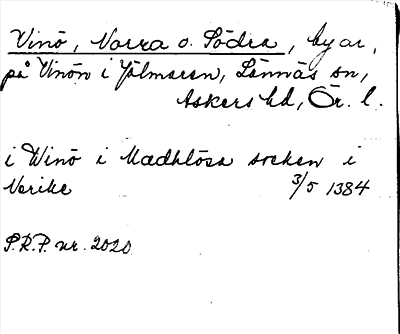 Vinö, Norra o. Södra, byar,
på Vinön i Hjälmaren, Lännäs sn,
Askers hd, Ör. l.
i Winö i Medhlösa socken i
Nerike 3/5 1384
S.R.P. nr. 2020